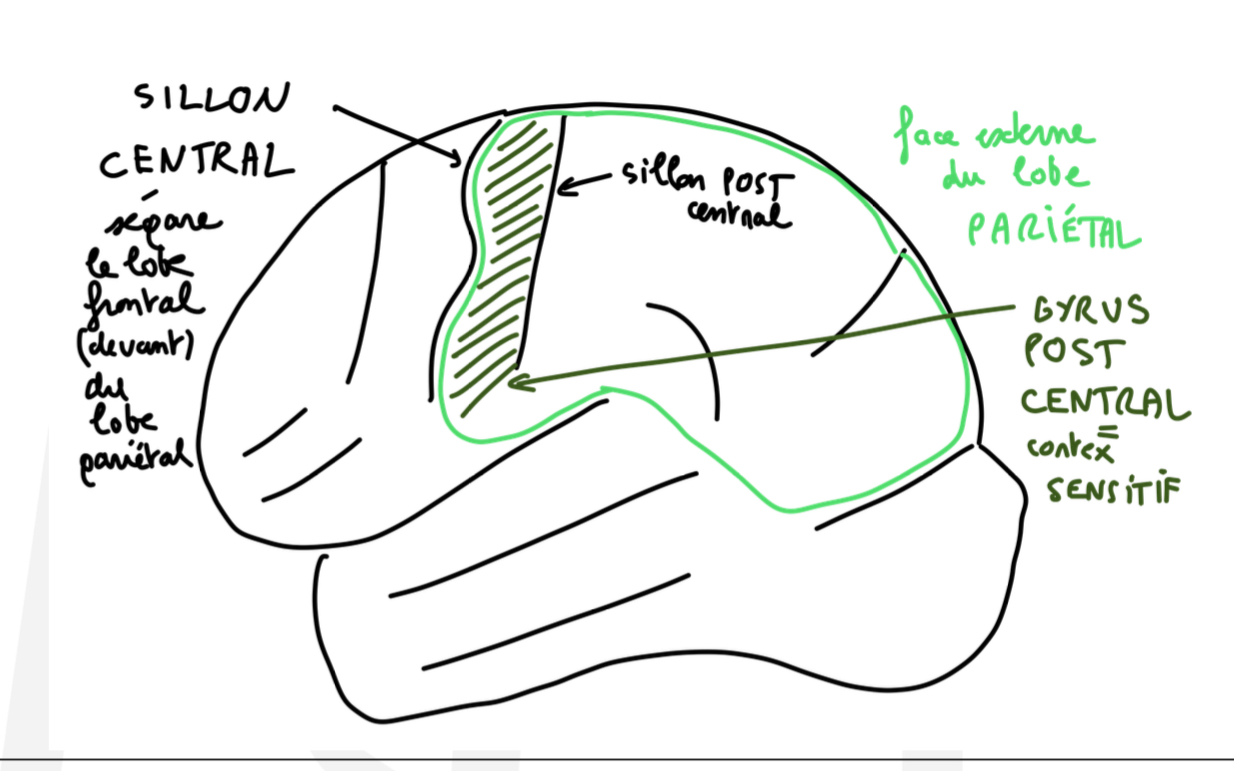 SILLON
CENTRAL
sépare
le lobe
frontal
(devant)
du
lobe
pariétal
sillon POST
central
face externe
du lobe
PARIÉTAL
GYRUS
POST
CENTRAL
=
cortex
SENSITIF